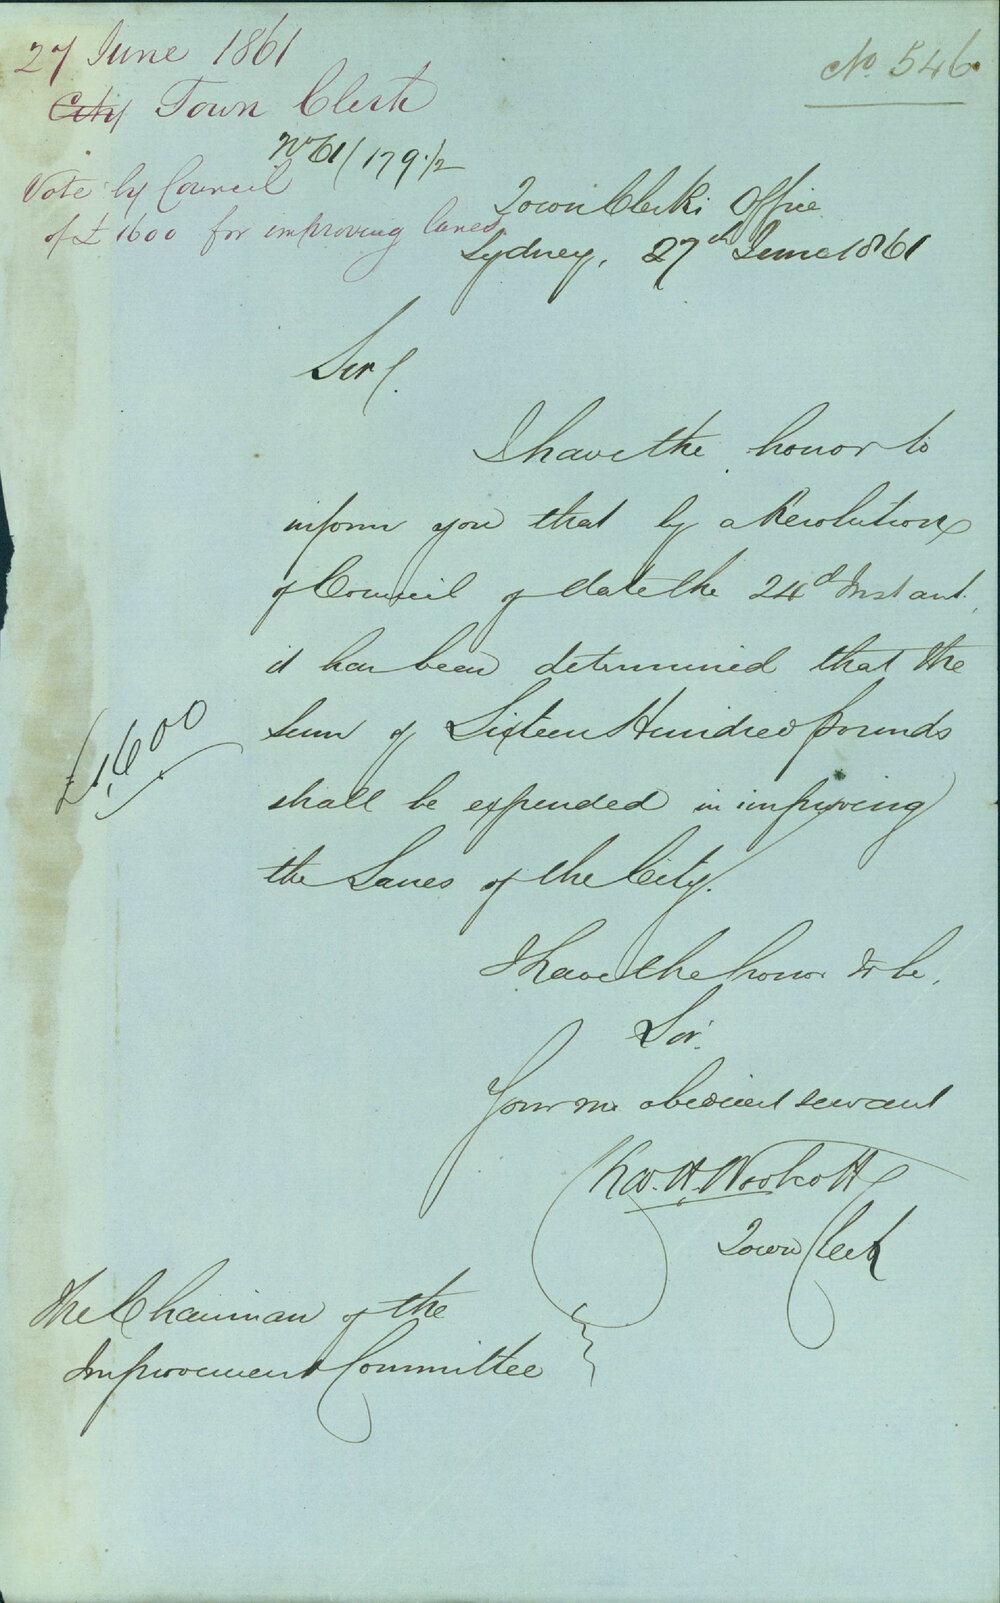 27 June 1861
No. 546
City Town Clerk
No 61/179.1/2
Vote by Council
of £1600 for improving lanes
Town Clerks Office
Sydney, 27th June 1861
Sir
I have the honor to
inform you that by a Resolution
of Council of date the 24th Instant
it has been determined that the
Sum of Sixteen Hundred pounds
£1,600
shall be expended in improving
the Lanes of the City.
I have the honor to be,
Sir
Your mo obedient servant
Chas. H. Woolcott
Town Clerk
The Chairman of the
Improvement Committee